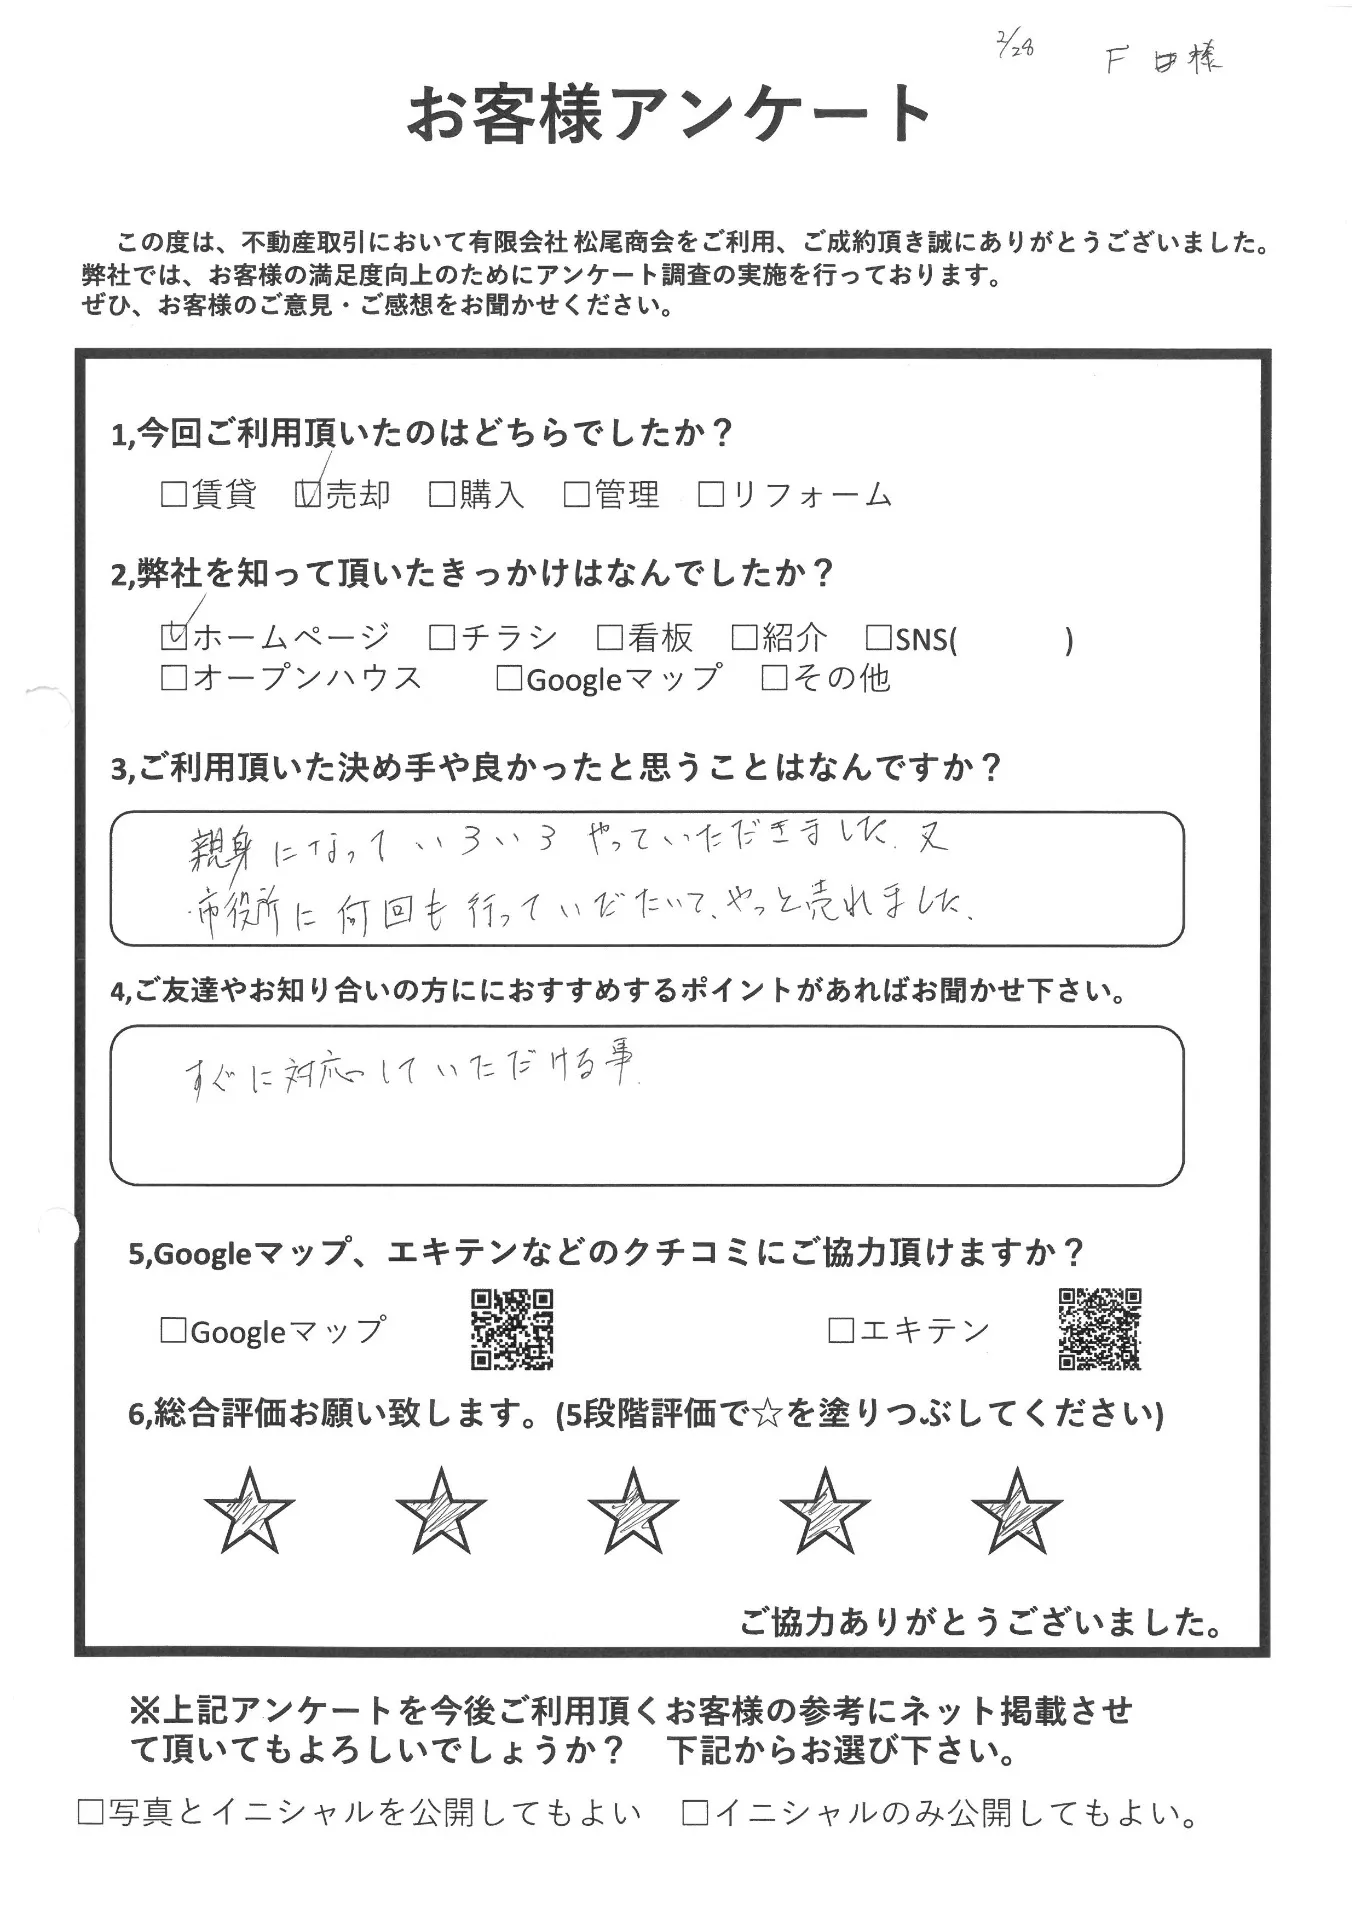 2/28 F田様
お客様アンケート
この度は、不動産取引において有限会社 松尾商会をご利用、ご成約頂き誠にありがとうございました。
弊社では、お客様の満足度向上のためにアンケート調査の実施を行っております。
ぜひ、お客様のご意見・ご感想をお聞かせください。
1,今回ご利用頂いたのはどちらでしたか？
□賃貸 ☑売却 □購入 □管理 □リフォーム
2,弊社を知って頂いたきっかけはなんでしたか？
☑ホームページ □チラシ □看板 □紹介 □SNS( )
□オープンハウス □Googleマップ □その他
3,ご利用頂いた決め手や良かったと思うことはなんですか？
親身になっていろいろやっていただきました。又
市役所に何回も行っていだたいて、やっと売れました。
4,ご友達やお知り合いの方ににおすすめするポイントがあればお聞かせ下さい。
すぐに対応していただける事.
5,Googleマップ、エキテンなどのクチコミにご協力頂けますか？
□Googleマップ □エキテン
6,総合評価お願い致します。(5段階評価で☆を塗りつぶしてください)
ご協力ありがとうございました。
※上記アンケートを今後ご利用頂くお客様の参考にネット掲載させ
て頂いてもよろしいでしょうか？ 下記からお選び下さい。
□写真とイニシャルを公開してもよい □イニシャルのみ公開してもよい。